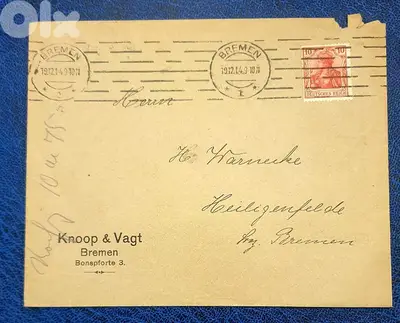 OLX
BREMEN
19.12.14.9-10N
* 1 *
BREMEN
19.12.14.9-10N
* 1 *
10 10
DEUTSCHES REICH
Herrn
H. Warnecke
Heiligenfelde
bz. Bremen
Knoop & Vagt
Bremen
Bonspforte 3.
10